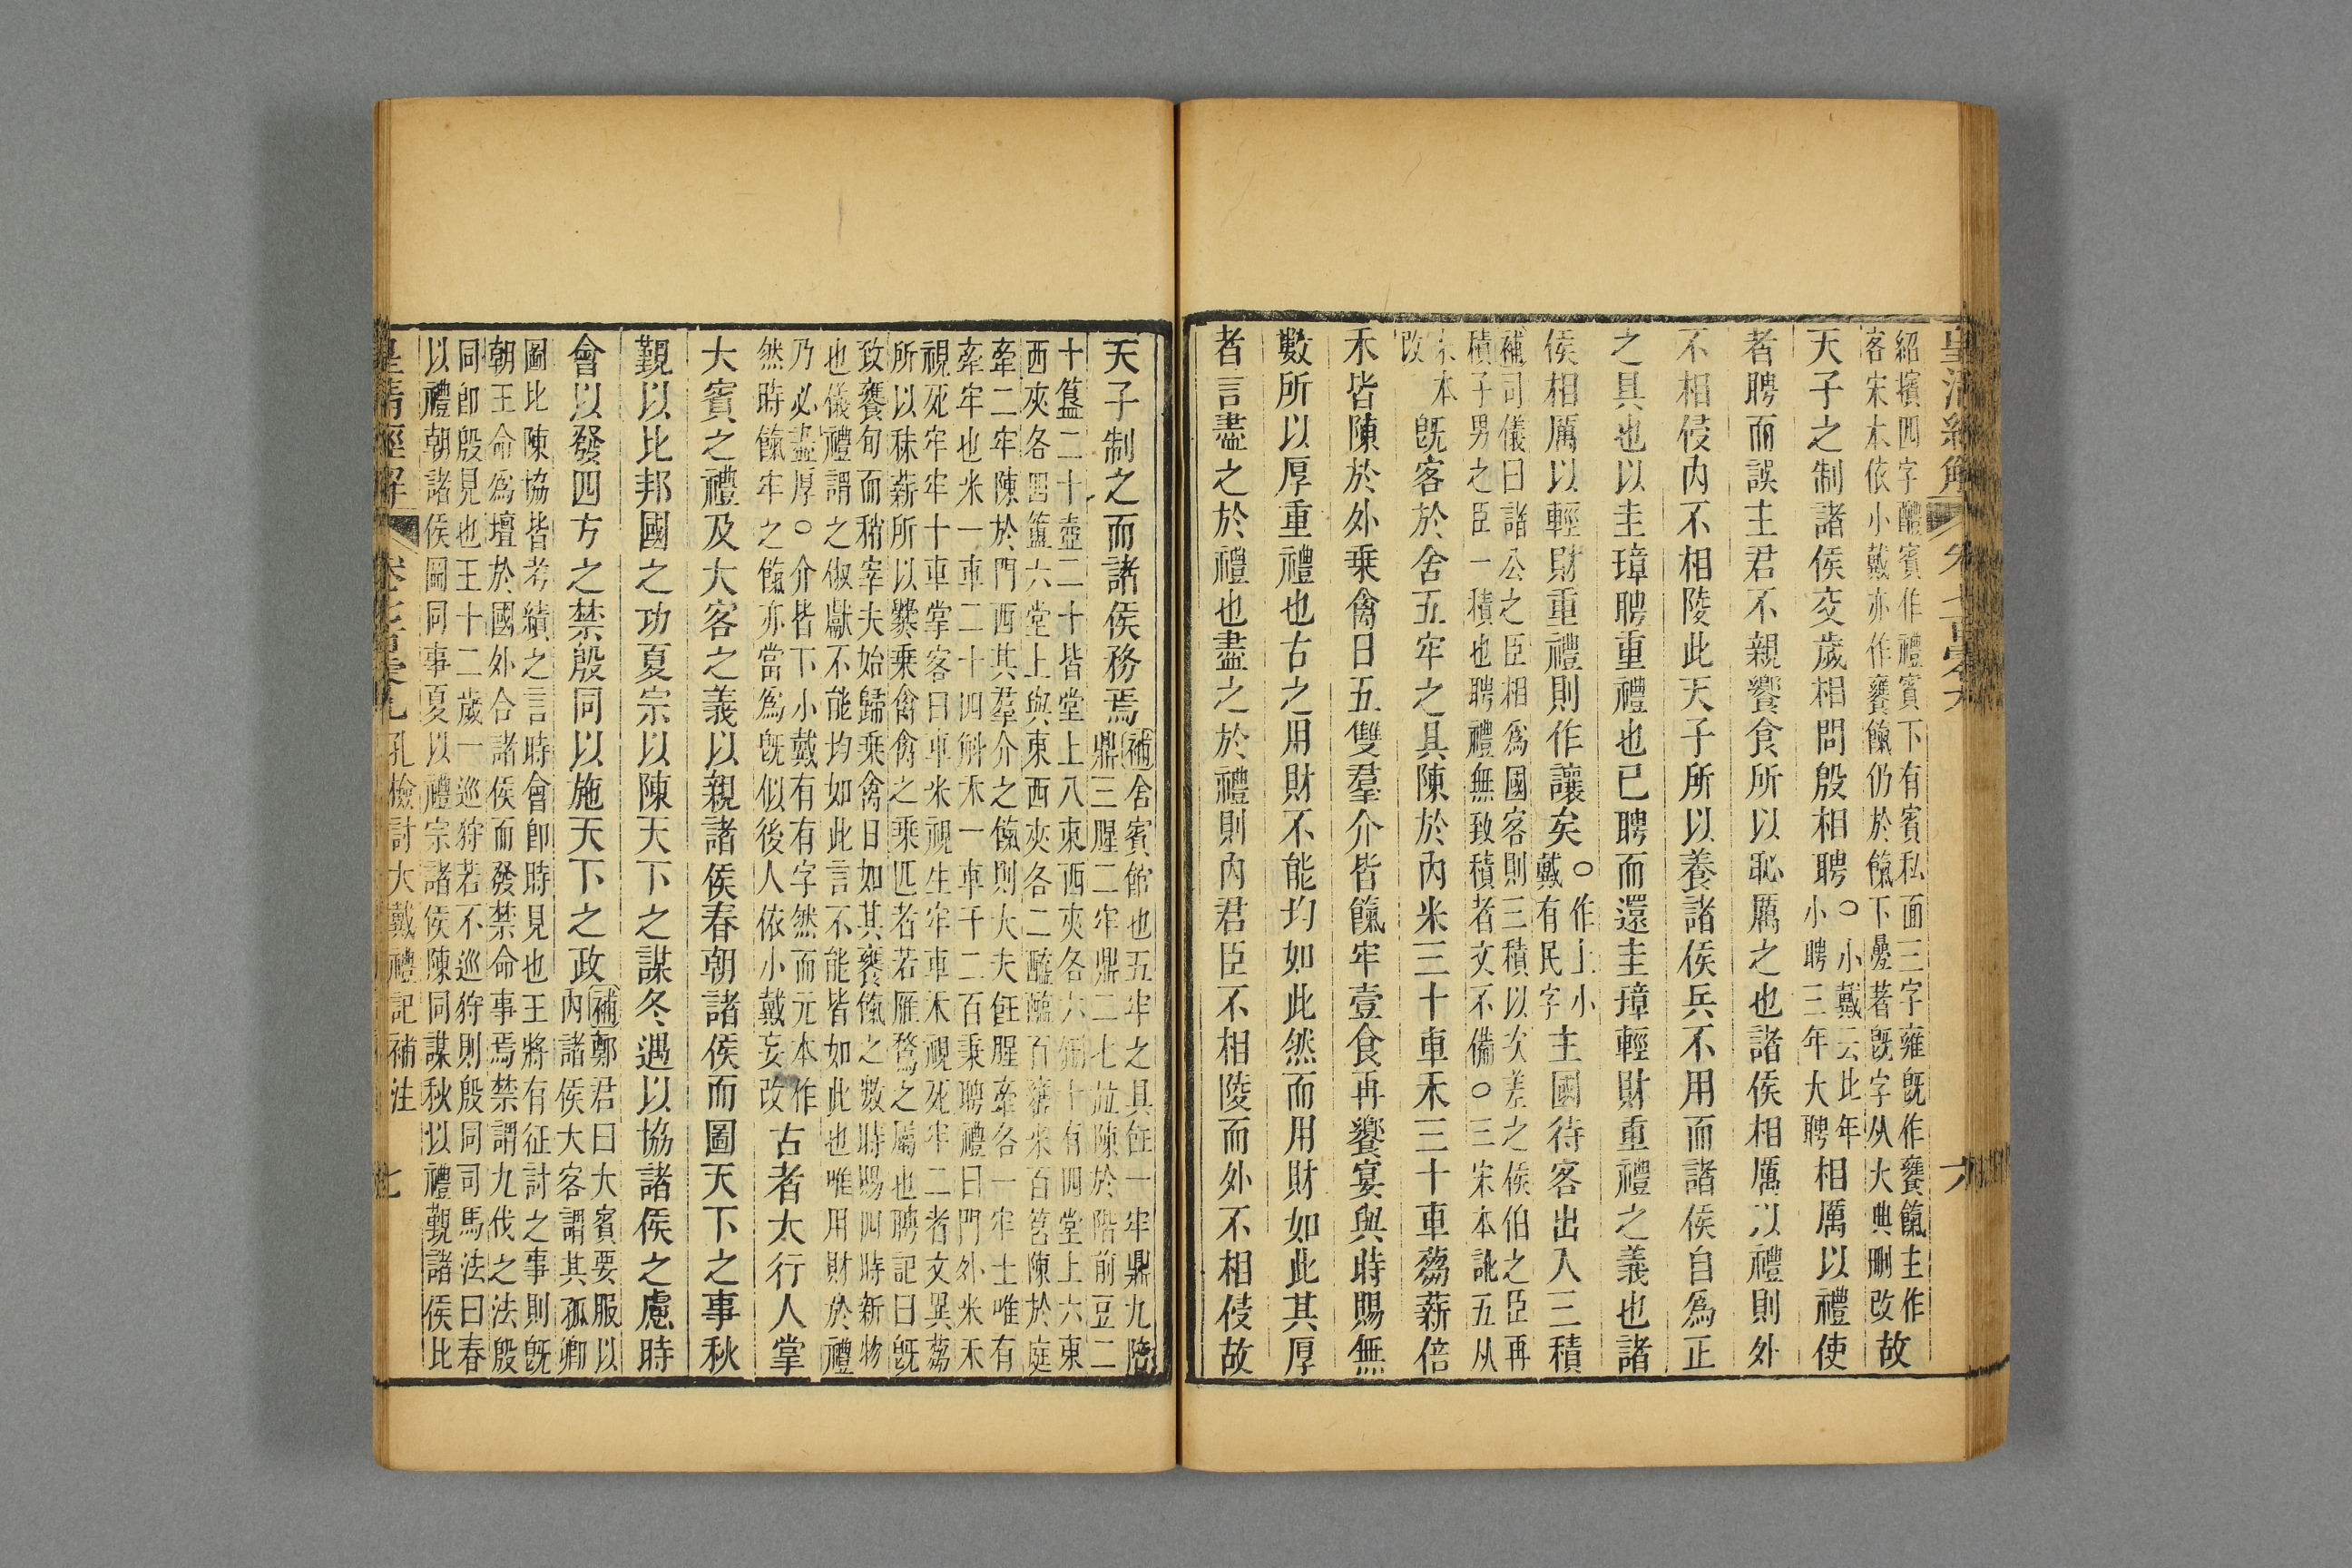 皇清經解 卷七百零九 六
紹擯四字醴賓作禮賓下有賓私面三字雍既作饔餼主作
客宋本依小戴亦作饔餼仍於餼下疊著既字从大典刪改故
天子之制諸侯交歲相問殷相聘○小戴云比年
小聘三年大聘相厲以禮使
者聘而誤主君不親饗食所以恥厲之也諸侯相厲以禮則外
不相侵內不相陵此天子所以養諸侯兵不用而諸侯自爲正
之具也以圭璋聘重禮也已聘而還圭璋輕財重禮之義也諸
侯相厲以輕財重禮則作讓矣○作上小
戴有民字主國待客出入三積
補司儀曰諸公之臣相爲國客則三積以次差之侯伯之臣再
積子男之臣一積也聘禮無致積者文不備○三宋本訛五从
朱本
改既客於舍五牢之具陳於內米三十車禾三十車芻薪倍
禾皆陳於外乘禽日五雙羣介皆餼牢壹食再饗宴與時賜無
數所以厚重禮也古之用財不能均如此然而用財如此其厚
者言盡之於禮也盡之於禮則內君臣不相陵而外不相侵故
天子制之而諸侯務焉補舍賓館也五牢之具飪一牢鼎九陪
鼎三腥二牢鼎二七竝陳於階前豆二
十簋二十壺二十皆堂上八東西夾各六鉶十有四堂上六東
西夾各四簠六堂上與東西夾各二醯醢百罋米百筥陳於庭
牽二牢陳於門西其羣介之餼則大夫飪腥牽各一牢士唯有
牽牢也米一車二十四斛禾一車千二百秉聘禮曰門外米禾
視死牢牢十車掌客曰車米視生牢車禾視死牢二者文異芻
所以秣薪所以爨乘禽禽之乘匹者若雁鶩之屬也聘記曰既
致饔旬而稍宰夫始歸乘禽日如其饔餼之數時賜四時新物
也儀禮謂之俶獻不能均如此言不能皆如此也唯用財於禮
乃必盡厚○介皆下小戴有有字然而元本作
然時餼牢之餼亦當爲既似後人依小戴妄改古者大行人掌
大賓之禮及大客之義以親諸侯春朝諸侯而圖天下之事秋
覲以比邦國之功夏宗以陳天下之謀冬遇以協諸侯之慮時
會以發四方之禁殷同以施天下之政補鄭君曰大賓要服以
內諸侯大客謂其孤卿
圖比陳協皆考績之言時會卽時見也王將有征討之事則既
朝王命爲壇於國外合諸侯而發禁命事焉禁謂九伐之法殷
同卽殷見也王十二歲一巡狩若不巡狩則殷同司馬法曰春
以禮朝諸侯圖同事夏以禮宗諸侯陳同謀秋以禮覲諸侯比
皇清經解 卷七百零九 孔檢討大戴禮記補注 七